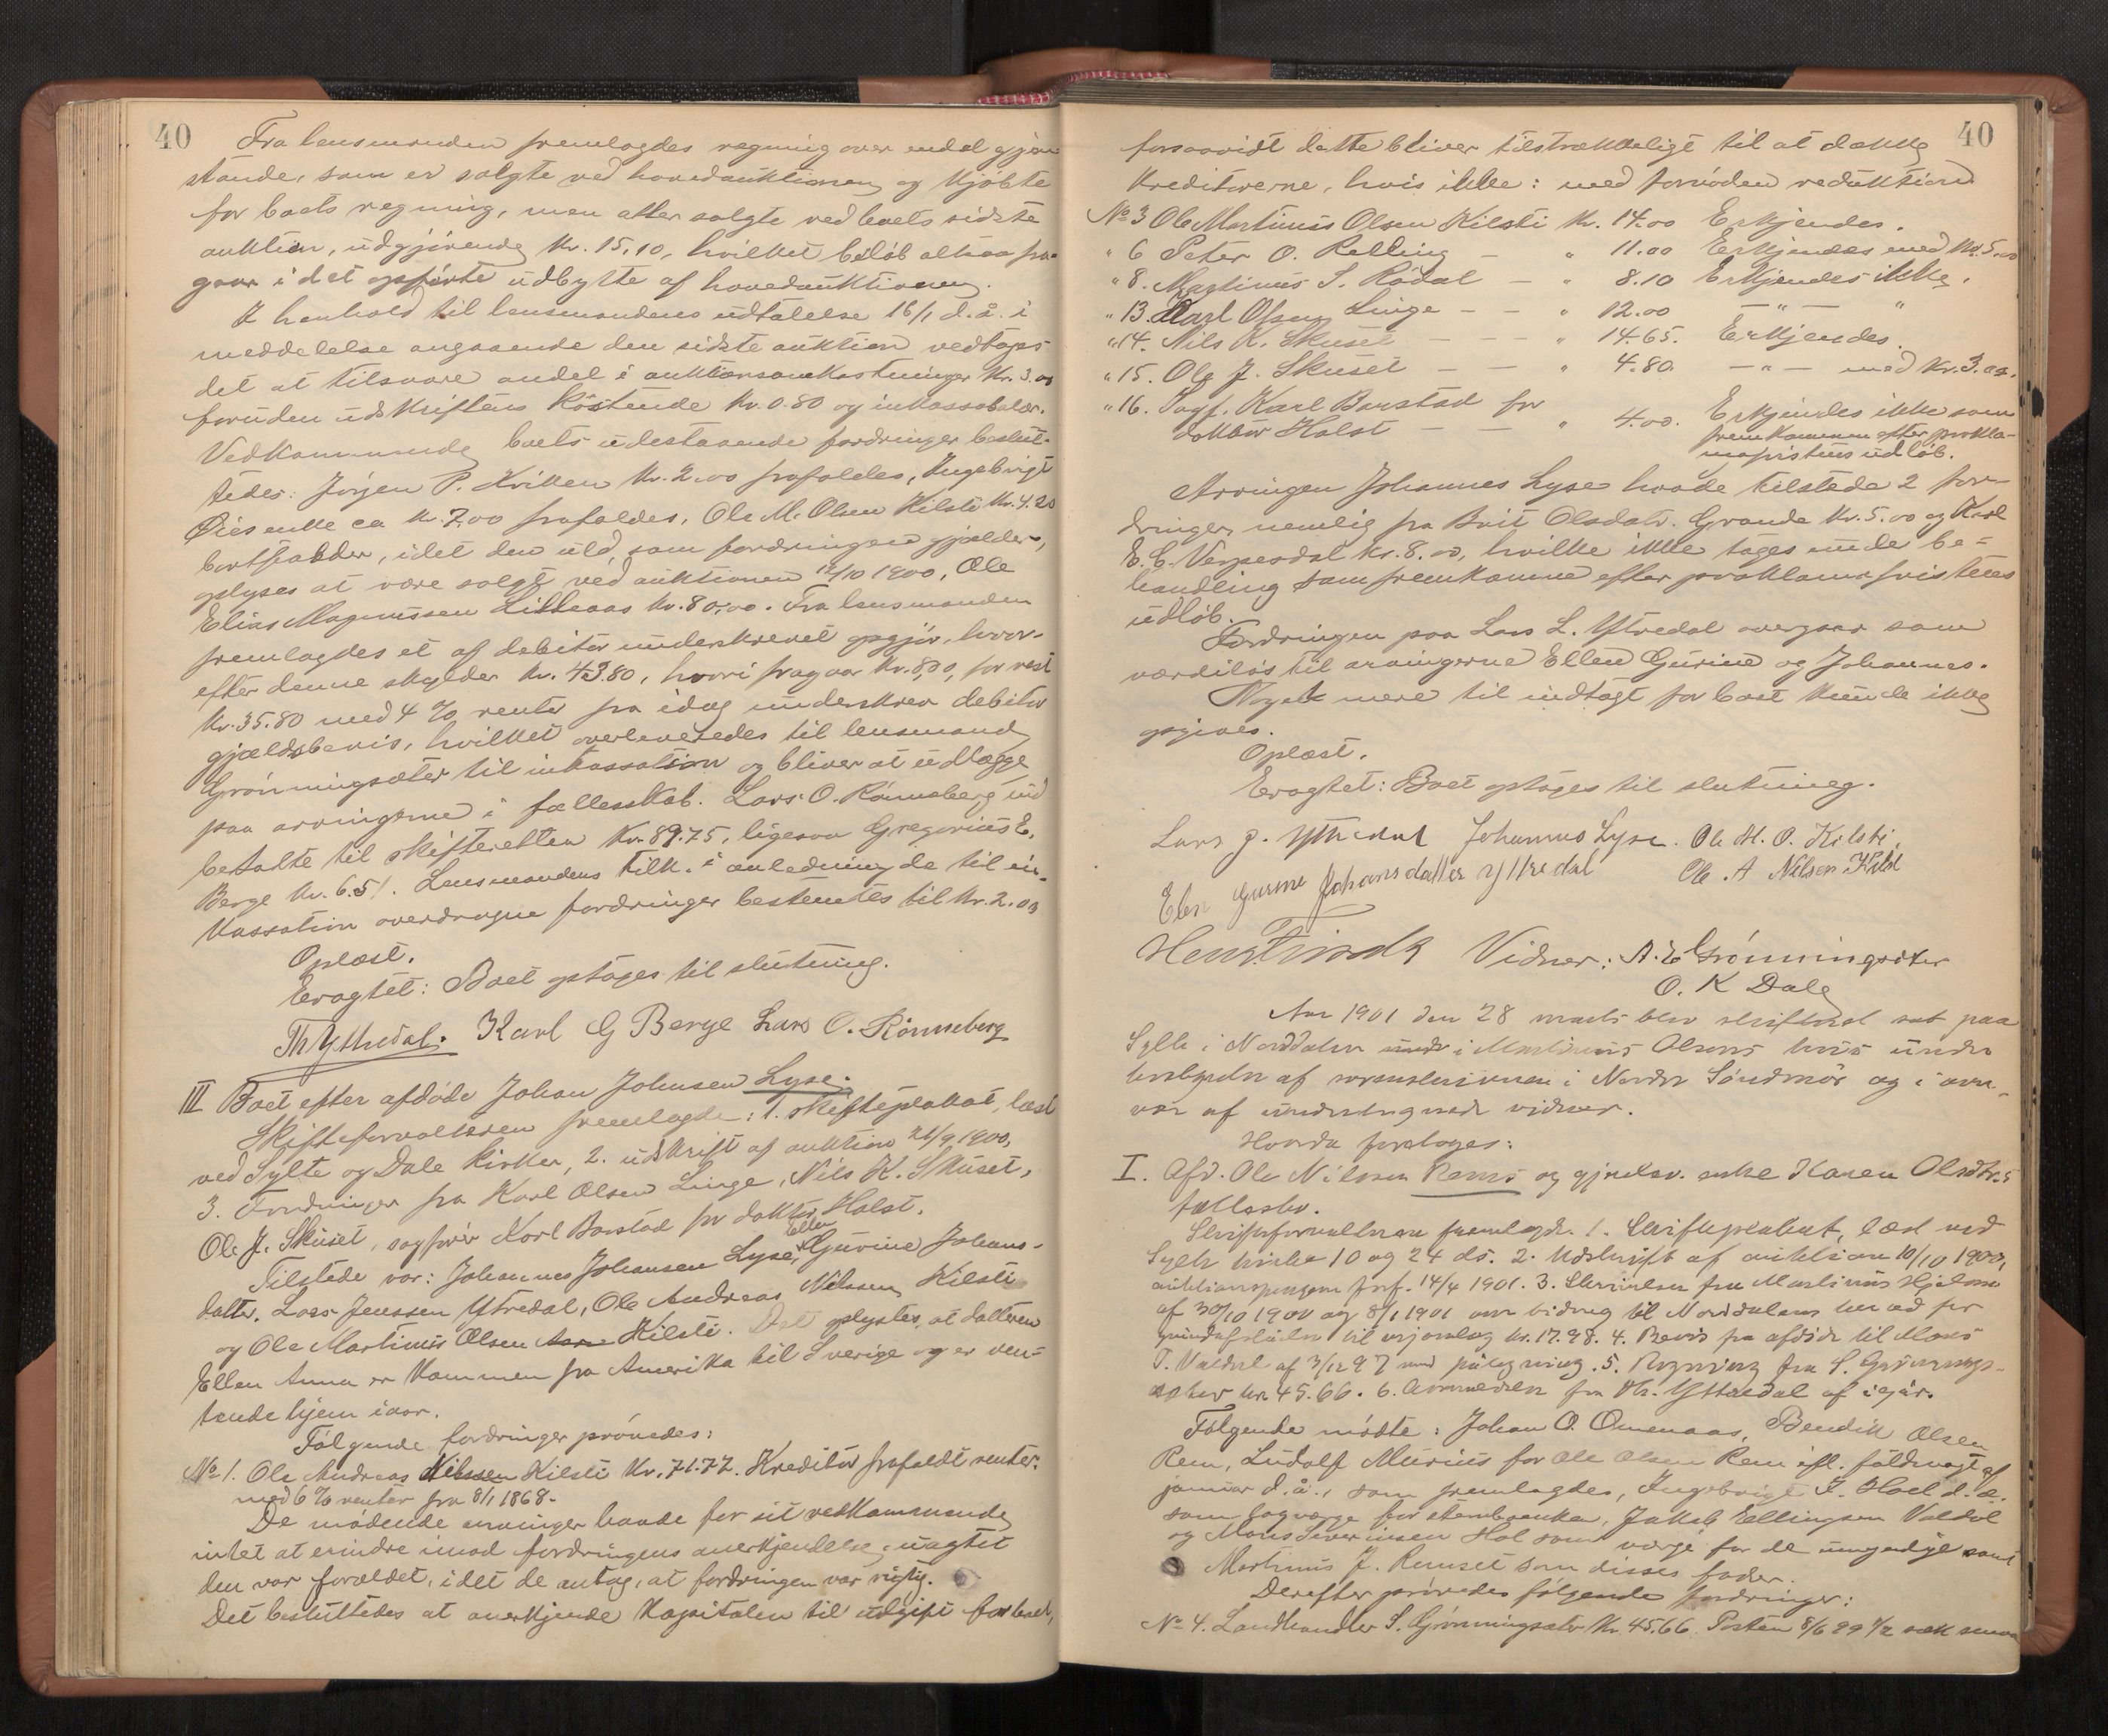 40
Fra lensmanden fremlagdes regning over endel gjen-
stande, som er solgte ved hovedauktionen og kjøbte
for boets regning, men atter solgte ved boets sidste
auktion, udgjørende Kr. 15,10, hvilket beløb altsaa fra-
gaar i det opførte udbytte af hovedauktionen.
I henhold til lensmandens udtalelse 16/1 d.å. i
meddelelse angaaende den sidste auktion vedtoges
det at tilsvare andel i auktionsomkostninger Kr. 3.00
foruden udskriftens kostende Kr. 0.80 og inkassosalær.
Vedkommende boets udestaaende fordringer beslut-
tedes: Jørgen P. Kviken Kr. 2.00 frafaldes, Ingebrigt
Øies enke ca Kr. 7,00 frafaldes, Ole M. Olsen Kilsti Kr. 4.20
bortfalder, idet den uld, som fordringen gjælder,
oplyses at være solgt ved auktionen 12/10 1900, Ole
Elias Magnussen Lilleaas Kr. 80,00. Fra lensmanden
fremlagdes et af debitor underskrevet opgjør, hvor-
efter denne skylder Kr. 43.80, hvori fragaar Kr. 8,00, for rest
Kr. 35.80 med 4 % renter fra idag underskrev debitor
gjældsbevis, hvilket overleveredes til lensmand
Grønningsæter til inkassation og bliver at udlægge
paa arvingerne i fællesskab. Lars O. Rønneberg ind
betalte til skifteretten Kr. 89.75, ligesaa Gregorius E.
Berge Kr. 6.51. Lensmandens tilk. i anledning de til in-
kassation overdragne fordringer bestemtes til Kr. 2.00
Oplæst.
Eragtet: Boet optages til slutning.
Th Ytredal. Karl G Berge Lars O. Rønneberg
III Boet efter afdøde Johan Johnsen Lyse.
Skifteforvalteren fremlagde: 1. skifteplakat, læst
ved Sylte og Dale kirker, 2. udskrift af auktion 21/9 1900,
3. Fordringer fra Karl Olsen Linge, Nils K. Skuset,
Ole J. Skuset, sagfører Karl Barstad for doktor Holst.
Tilstede var: Johannes Johansen Lyse, Ellen Gurine Johans-
datter, Lars Jenssen Ytredal, Ole Andreas Nilssen Kilsti
og Ole Martinus Olsen Kilsti. Det oplystes, at datteren
Ellen Anna er kommen fra Amerika til Sverige og er ven-
tende hjem iaar.
Følgende fordringer prøvedes:
No 1. Ole Andreas Nilssen Kilsti Kr. 71.72. Kreditor frafaldt renter.
med 6 % renter fra 8/1 1868.
De mødende arvinger havde for sit vedkommende
intet at erindre imod fordringens anerkjendelse, uagtet
den var forældet, idet de antog, at fordringen var rigtig.
Det besluttedes at anerkjende kapitalen til udgift for boet,
40
forsaavidt dette bliver tilstrækkeligt til at dække
kreditorerne, hvis ikke: med fornøden reduktion
No 3 Ole Martinus Olsen Kilsti Kr. 14.00 Erkjendes.
" 6 Peter O. Relling — " 11.00 Erkjendes med Kr. 5.00
" 8. Martinus S. Rødal — " 8.10 Erkjendes ikke.
" 13. Karl Olsen Linge — — " 12.00 — " — "
" 14. Nils K. Skuset — — — " 14.65. Erkjendes.
" 15. Ole J. Skuset — — " 4.80. — " — med Kr. 3.00.
" 16. Sagf. Karl Barstad for
doktor Holst — — " 4.00. Erkjendes ikke som
fremkommen efter prokla-
mafristens udløb.
Arvingen Johannes Lyse havde tilstede 2 for-
dringer, nemlig fra Brit Olsdatr. Grande Kr. 5.00 og Karl
E. C. Verpesdal Kr. 8.00, hvilke ikke toges under be-
handling som fremkomne efter proklamafristens
udløb.
Fordringen paa Lars L. Ytredal overgaar som
værdiløs til arvingerne Ellen Gurine og Johannes.
Noget mere til indtægt for boet kunde ikke
opgives.
Oplæst.
Eragtet: Boet optages til slutning.
Lars J. Ytredal Johannes Lyse. Ole M. O. Kilsti.
Elen Gurine Johansdatter Yttredal Ole A Nilsen Kilst
Vidner: A. E Grønningsæter
O. K Dale
Aar 1901 den 28 marts blev skifteret sat paa
Sylte i Norddalen i Martinus Olsens hus under
bestyrelse af sorenskriveren i Nordre Søndmør og i over-
vær af undertegnede vidner.
Hvorda foretoges:
I. Afd. Ole Nilssen Rems og gjenlev. enke Karen Olsdtr.s
fællesbo.
Skifteforvalteren fremlagde. 1. Skifteplakat, læst ved
Sylte kirke 10 og 24 ds. 2. Udskrift af auktion 10/10 1900,
auktionspengene forf. 14/4 1901. 3. Skrivelser fra Martinus Hjelme
af 30/10 1900 og 8/1 1901 om bidrag til Norddalens herred for
Kr. 17.98. 4. Bevis fra afdøde til Mons
T. Valdal af 3/12 97 med påtegning. 5. Regning fra S. Grønnings-
æter Kr. 45.66. 6. Anmeldelse fra Th. Yttredal af igår.
Følgende mødte: Johan O. Omenaas, Bendik Olsen
Rem, Ludolf Murius for Ole Olsen Rem ifl. fuldmagt af
januar d.å., som fremlagdes, Ingebrigt I. Hoel d.e.
som lagværge for sterbeenken, Jakob Ellingsen Valdal
og Mons Severinsen Hol som værge for de umyndige samt
Martinus J. Remset som disses fader.
Derefter prøvedes følgende fordringer:
No 4. Landhandler S. Grønningsæter Kr. 45.66. Posten 8/6 99 1/2 sæk